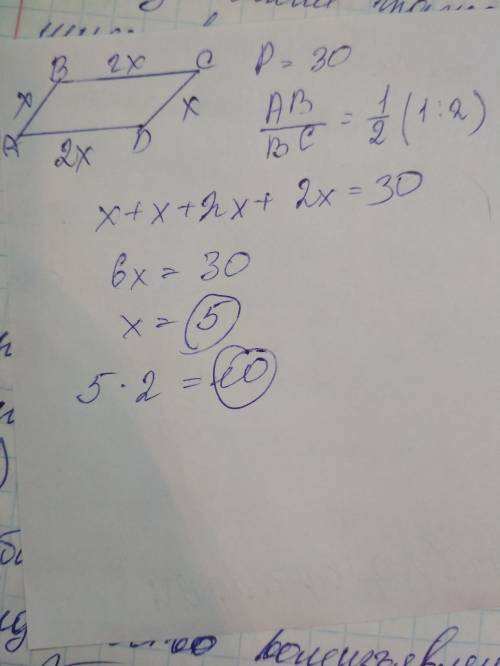 B 2x C
x x
A 2x D
P = 30
AB/BC = 1/2 (1:2)
x + x + 2x + 2x = 30
6x = 30
x = 5
5 · 2 = 10